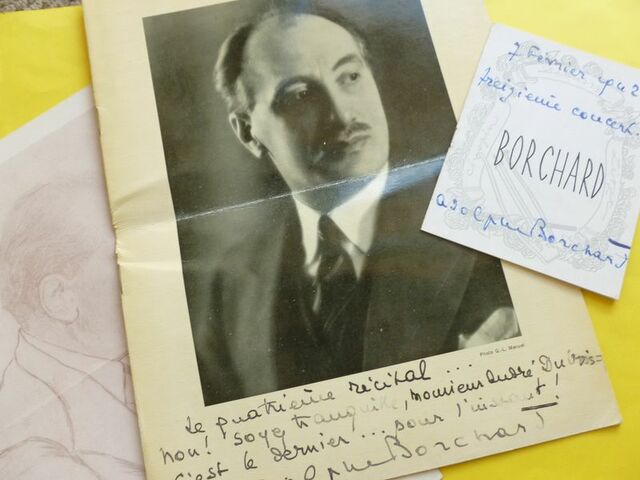 7 Février 1942
treizième concert
BORCHARD
adolphe Borchard
Photo G.-L. Manuel
Le quatrième récital ...
non! soyez tranquille, Monsieur André Du
c'est le dernier ... pour l'instant!
adolphe Borchard